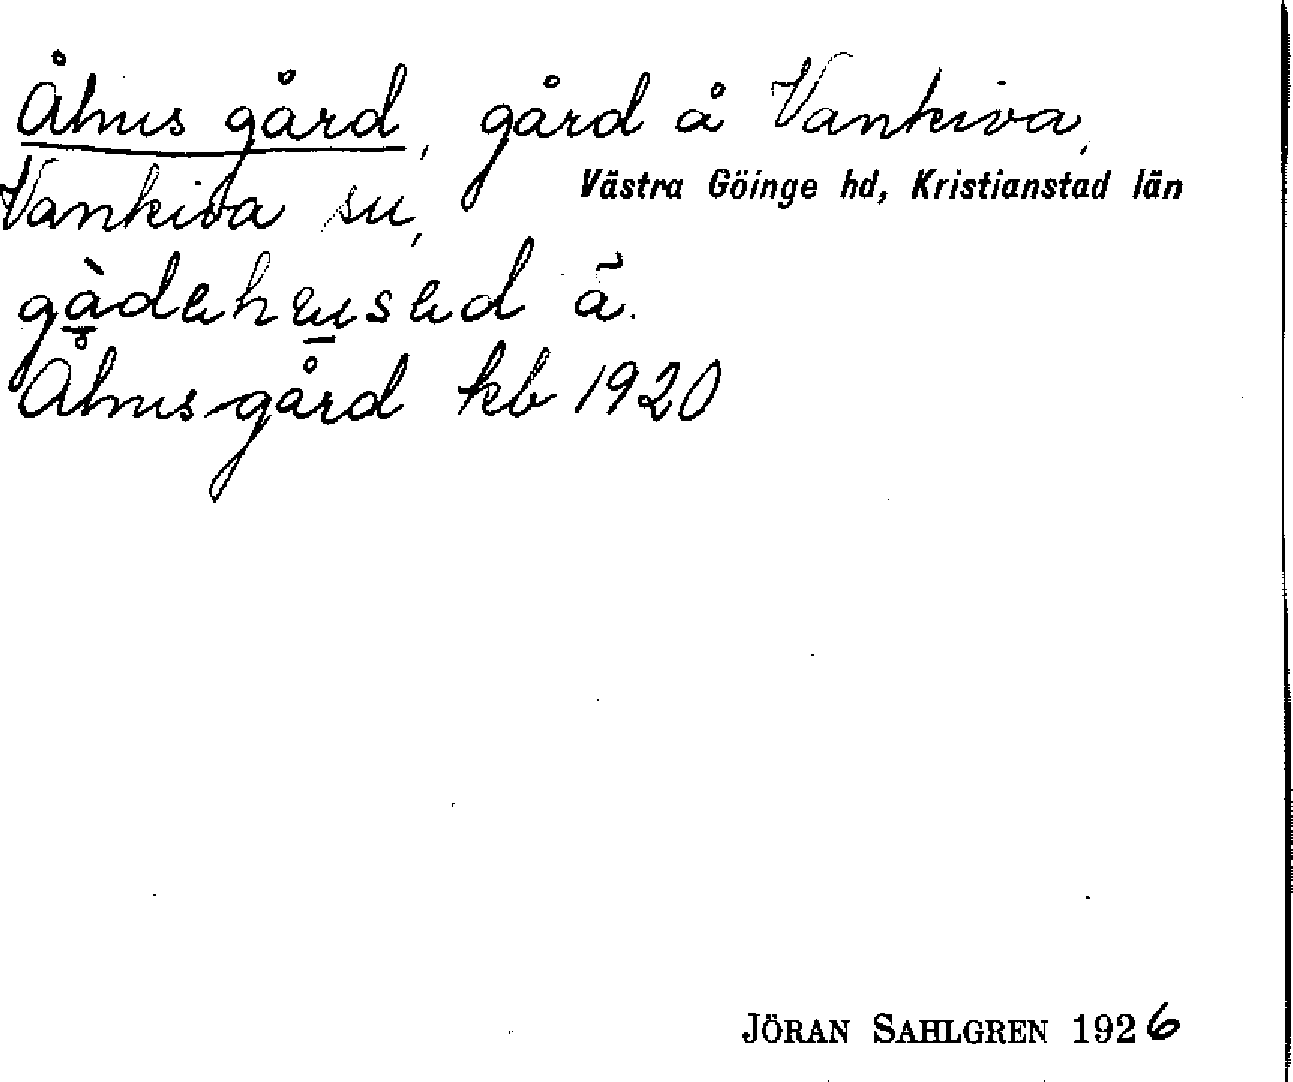 Åhus gård, gård å Vankiva,
Västra Göinge hd, Kristianstad län
Vankiva su,
Åhus-gård kb 1920
JÖRAN SAHLGREN 1926